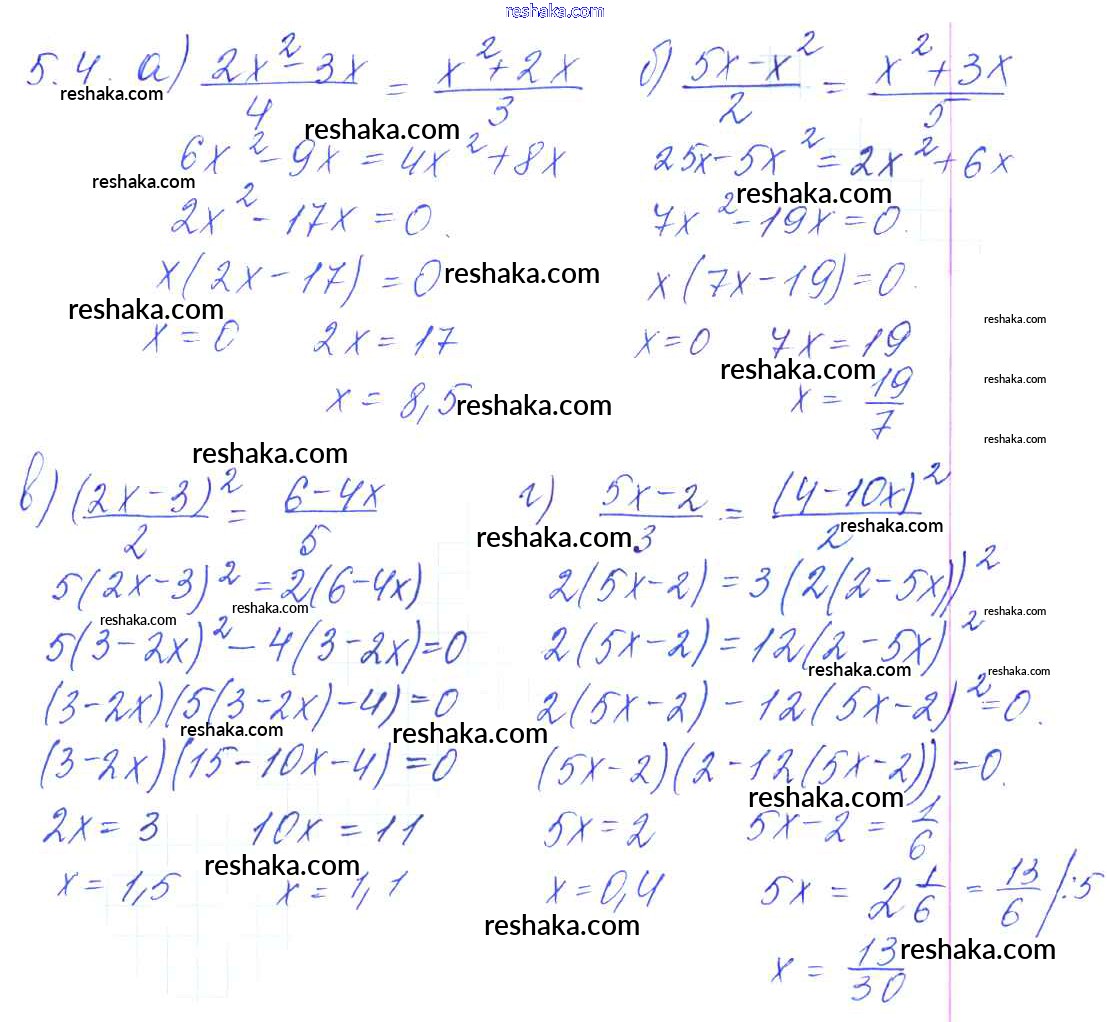 reshaka.com
5.4. а) (2x² - 3x)/4 = (x² + 2x)/3
reshaka.com
reshaka.com
6x² - 9x = 4x² + 8x
reshaka.com
2x² - 17x = 0.
x(2x - 17) = 0
reshaka.com
reshaka.com
x = 0 2x = 17
x = 8,5
reshaka.com
б) (5x - x²)/2 = (x² + 3x)/5
25x - 5x² = 2x² + 6x
reshaka.com
7x² - 19x = 0.
x(7x - 19) = 0.
reshaka.com
x = 0 7x = 19
reshaka.com
reshaka.com
x = 19/7
reshaka.com
reshaka.com
в) (2x - 3)²/2 = (6 - 4x)/5
5(2x - 3)² = 2(6 - 4x)
reshaka.com
reshaka.com
5(3 - 2x)² - 4(3 - 2x) = 0
(3 - 2x)(5(3 - 2x) - 4) = 0
reshaka.com
reshaka.com
(3 - 2x)(15 - 10x - 4) = 0
2x = 3 10x = 11
reshaka.com
x = 1,5 x = 1,1
г) (5x - 2)/3 = (4 - 10x)²/2
reshaka.com
reshaka.com
2(5x - 2) = 3(2(2 - 5x))²
reshaka.com
2(5x - 2) = 12(2 - 5x)²
reshaka.com
reshaka.com
2(5x - 2) - 12(5x - 2)² = 0.
(5x - 2)(2 - 12(5x - 2)) = 0.
reshaka.com
5x = 2 5x - 2 = 1/6
x = 0,4 5x = 2 1/6 = 13/6 /:5
reshaka.com
x = 13/30
reshaka.com